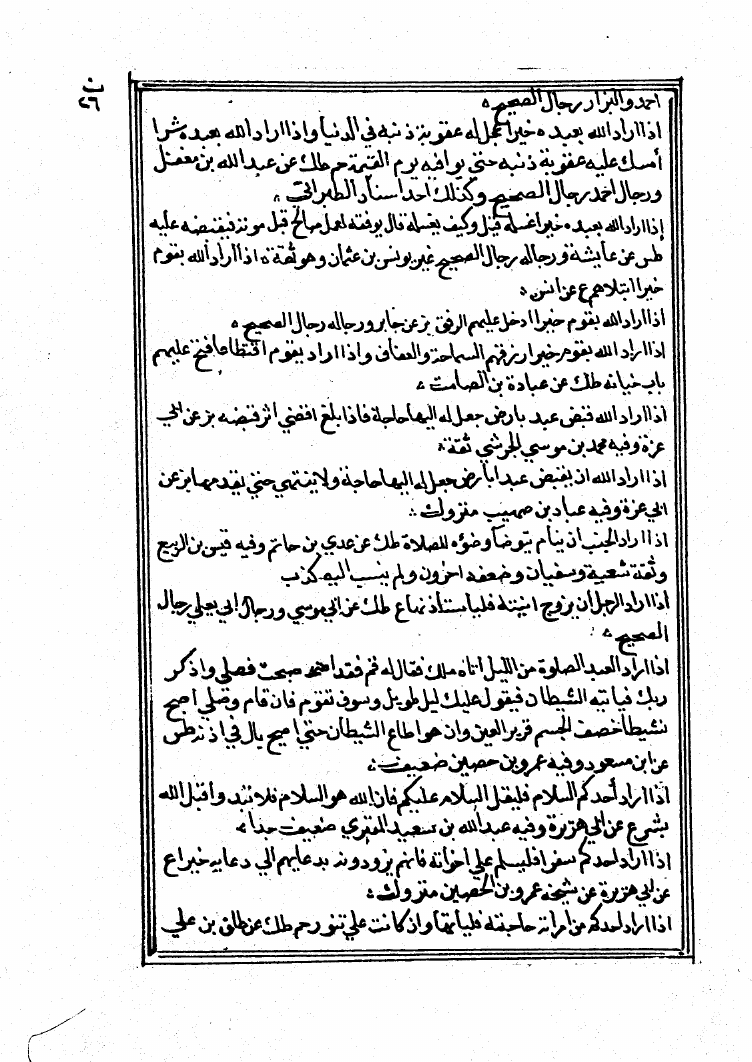 ن
٢٦
احمد والبزار رجال الصحيح
اذا اراد الله بعبده خيرا عجل له عقوبة ذنبه في الدنيا واذا اراد الله بعبده شرا
أمسك عليه عقوبة ذنبه حتي يوافيه يوم القيمة حم طك عن عبد الله بن مغفل
ورجال احمد رجال الصحيح وكذلك احد اسناد الطبراني
إذا اراد الله بعبده خيرا غسله قيل وكيف يغسله قال يوفقه لعمل صالح قبل موته فيقبضه عليه
طس عن عايشة ورجاله رجال الصحيح غير يونس بن عثمان وهو ثقة اذا أراد الله بقوم
خيرا ابتلاهم ع عن انس
اذا اراد الله بقوم خيرا ادخل عليهم الرفق بز عن جابر ورجاله رجال الصحيح
اذا اراد الله بقوم خيرا رزقهم السماحة والعفاف واذا اراد بقوم اقتطاعا فتح عليهم
باب خيانة طك عن عبادة بن الصامت
اذا اراد الله قبض عبد بارض جعل له اليها حاجة فاذا بلغ اقصي اثر قبضه بز عن ابي
عزة وفيه محمد بن موسي الحرشي ثقة
اذا اراد الله ان يقبض عبدا بأرض جعل له اليها حاجة ولا ينتهي حتي يقدمها بز عن
ابي عزة وفيه عباد بن صهيب متروك
اذا اراد الجنب ان ينام توضأ وضوءه للصلاة طك عن عدي بن حاتم وفيه قيس بن الربيع
وثقة شعبة وسفيان وضعفه اخرون ولم ينسب اليه كذب
اذا اراد الرجل ان يزوج ابنته فليأستأذنها ع طك عن ابي موسي ورجال ابي يعلي رجال
الصحيح
اذا اراد العبد الصلوة من الليل اتاه ملك فقال له قم فقد اصبحت فصلي واذكر
ربك فياتيه الشيطان فيقول عليك ليل طويل وسوف تقوم فان قام وصلي اصبح
نشيطا خفيف الجسم قرير العين وان هو اطاع الشيطان حتي اصبح بال في اذنه طس
عن ابن مسعود وفيه عمرو بن حصين ضعيف
اذا اراد أحدكم السلام فليقل السلام عليكم فان الله هو السلام فلا تبدوا قبل الله
بشئ ع عن ابي هريرة وفيه عبد الله بن سعيد المقبري ضعيف جدا
اذا اراد احدكم سفرا فليسلم علي اخوانه فانهم يزودونه بدعايهم الي دعايه خيرا ع
عن ابي هريرة عن شيخه عمرو بن الحصين متروك
اذا اراد احدكم من امراته حاجته فليأتها وان كانت علي تنور حم طك عن طلق بن علي